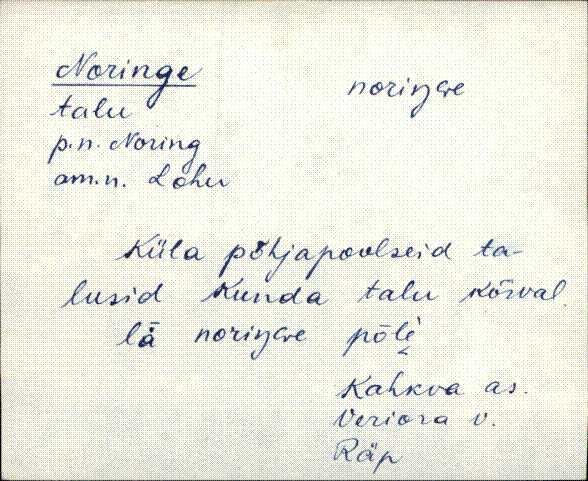 Noringe
noriŋɢe
talu
p.n. Noring
am.n. Lohu
Küla põhjapoolseid ta-
lusid Kunda talu kõrval.
lä noriŋɢe põlè
Kahkva as.
Veriora v.
Räp